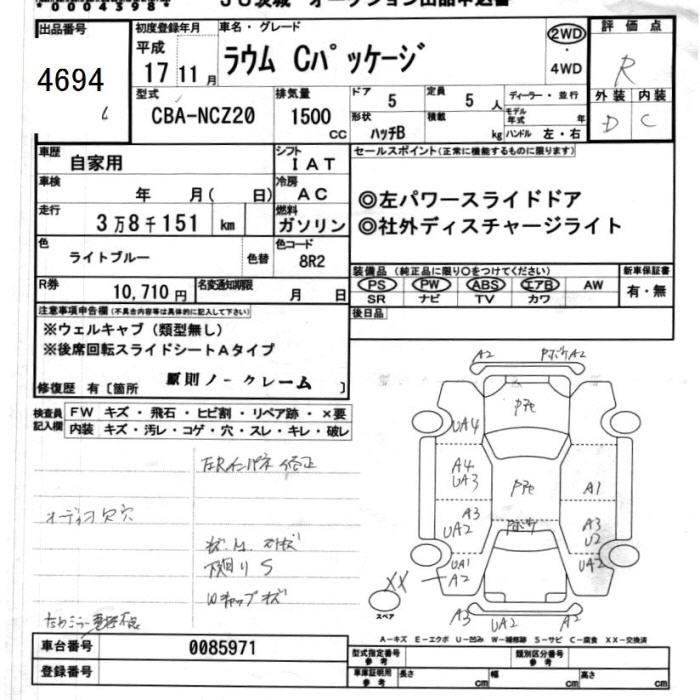 出品番号
4694
初度登録年月
平成
17 11月
車名・グレード
ラウム Cパッケージ
2WD
・
4WD
評価点
R
型式
CBA-NCZ20
排気量
1500
CC
ドア 5
定員 5 人
ディーラー・並行
形状
ハッチB
積載 kg
モデル年式 年
ハンドル 左・右
外装 内装
D C
車歴 自家用
シフト IAT
車検 年 月( 日)
冷房 AC
走行 3万8千151 km
燃料 ガソリン
色 ライトブルー 色替
色コード 8R2
R券 10,710円
名変通知期限 月 日
セールスポイント(正常に機能するものに限ります)
◎左パワースライドドア
◎社外ディスチャージライト
装備品 (純正品に限り〇をつけてください)
新車保証書
PS PW ABS エアB AW
有・無
SR ナビ TV カワ
後日品
注意事項申告欄(不具合内容等は具体的に記入して下さい)
※ウェルキャブ(類型無し)
※後席回転スライドシートAタイプ
修復歴 有〔箇所 原則ノークレーム 〕
検査員記入欄
FW キズ・飛石・ヒビ割・リペア跡・×要
内装 キズ・汚レ・コゲ・穴・スレ・キレ・破レ
オーディオ欠穴
下回りS
Wキャップキズ
A2
A2
UA4
A4
UA3
A1
A3
UA2
A3
U2
UA1
A2
UA2
XX
スペア
A3
UA2
A2
A-キズ E-エクボ U-凹み W-補修跡 S-サビ C-腐食 XX-交換済
車台番号 0085971
登録番号
型式指定番号 参考
類別区分番号 参考
車庫証明用 参考
長さ cm
幅 cm
高さ cm